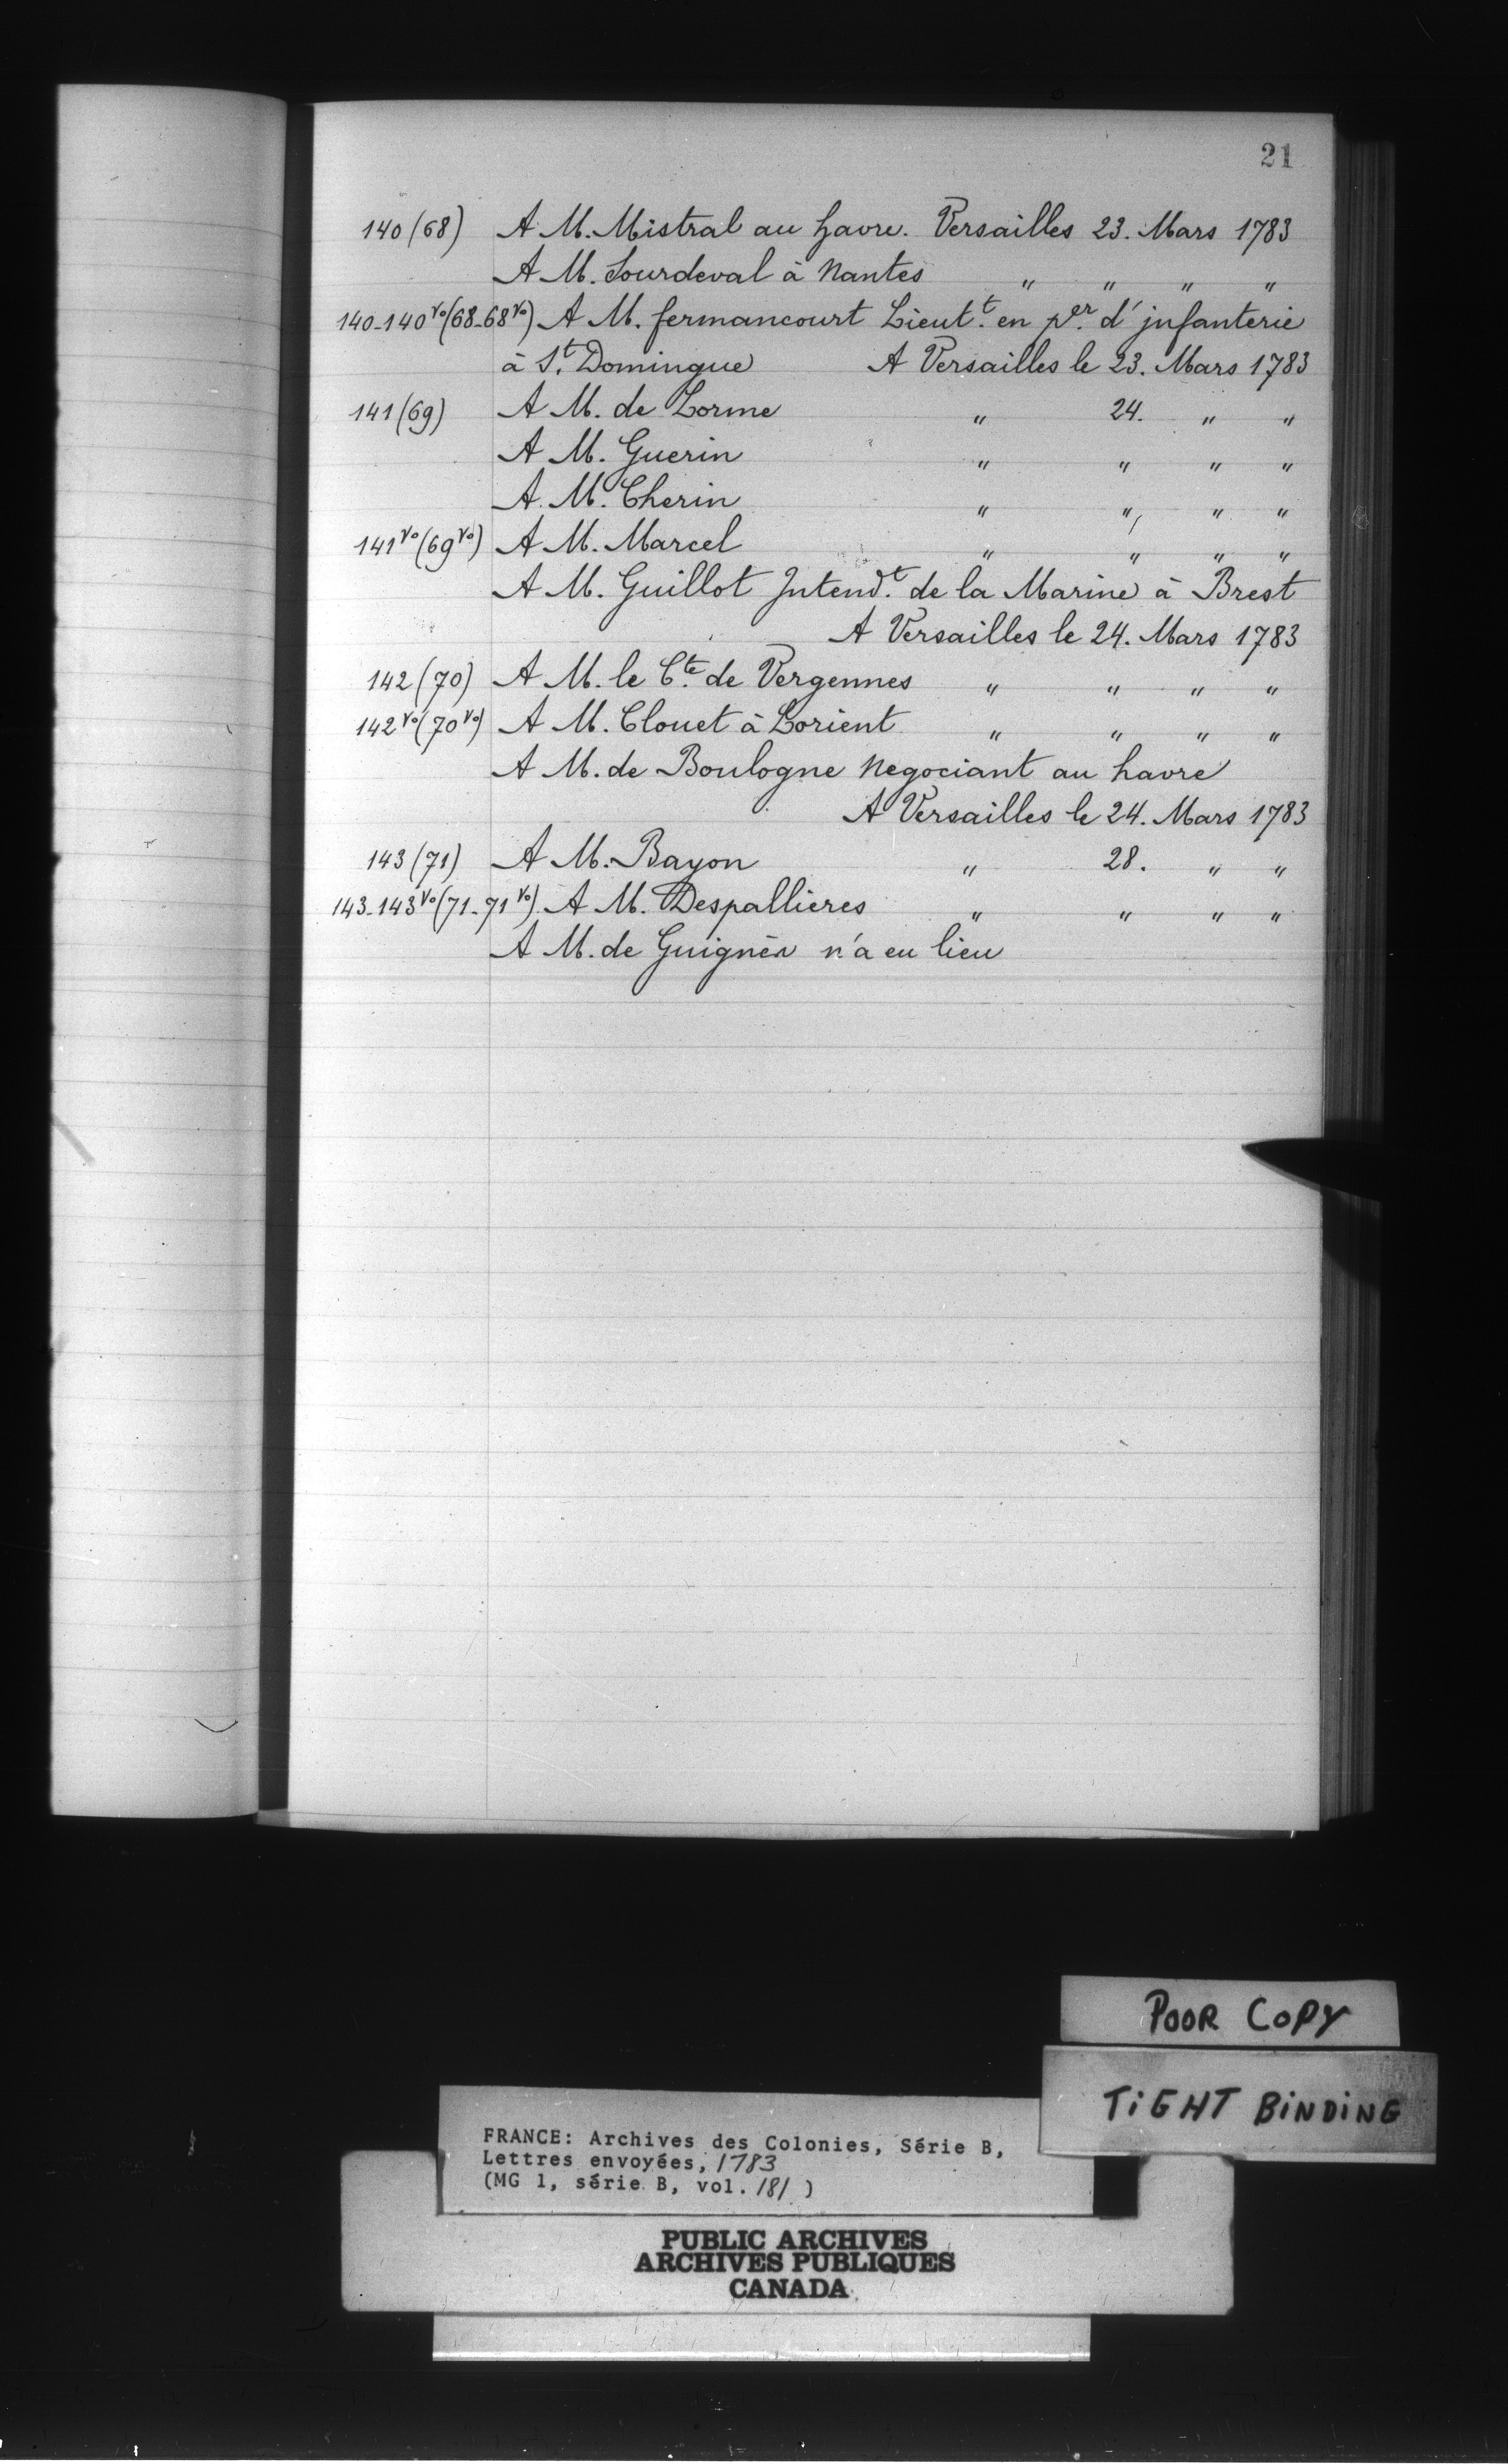 21
140 (68) A M. Mistral au havre. Versailles 23. Mars 1783
A M. Sourdeval à Nantes " " " "
140-140 vo (68-68 vo) A M. fermancourt Lieut.t en p.er d'jnfanterie
à S.t Domingue A Versailles le 23. Mars 1783
141 (69) A M. de Lorme " 24. " "
A M. Guerin " " " "
A M. Cherin " " " "
141 vo (69 vo) A M. Marcel " " " "
A M. Guillot Jntend.t de la Marine à Brest
A Versailles le 24. Mars 1783
142 (70) A M. le C.te de Vergennes " " " "
142 vo (70 vo) A M. Clouet à Lorient " " " "
A M. de Boulogne Negociant au havre
A Versailles le 24. Mars 1783
143 (71) A M. Bayon " 28. " "
143-143 vo (71-71 vo) A M. Despallieres " " " "
A M. de n'a eu lieu
POOR COPY
TIGHT BINDING
FRANCE: Archives des Colonies, Série B,
Lettres envoyées, 1783
(MG 1, série B, vol. 181 )
PUBLIC ARCHIVES
ARCHIVES PUBLIQUES
CANADA